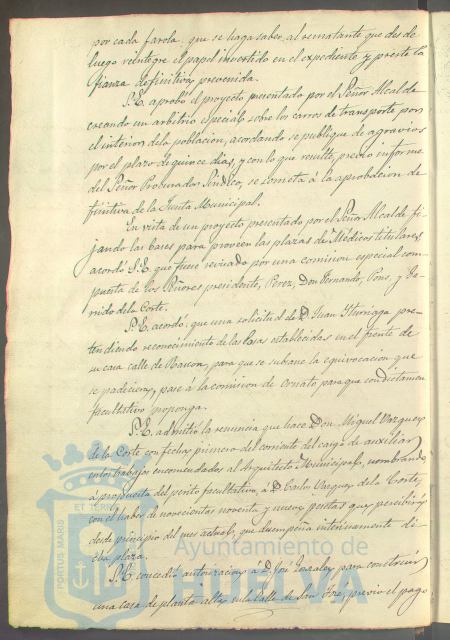 por cada farola, que se haga saber al rematante que desde
luego reintegre el papel invertido en el expediente y preste la
fianza definitiva prevenida.
S. E. aprobó el proyecto presentado por el Señor Alcalde
creando un arbitrio especial sobre los carros de transporte por
el interior de la poblacion, acordando se publique de agravios
por el plazo de quince dias, y con lo que resulte, previo informe
del Señor Procurador Sindico, se someta á la aprobacion de
finitiva de la Junta Municipal.
En vista de un proyecto presentado por el Señor Alcalde fi-
jando las bases para proveer las plazas de Médicos titulares,
acordó S. E. que fuese revisado por una comision especial com-
puesta de los Señores presidente, Perez, Don Fernando, Pons, y
de la Corte.
S. E. acordó, que una solicitud de D. Juan Yturriaga pre-
tendiendo reconocimiento de las losas establecidas en el frente de
su casa calle de Rascon, para que se subsane la equivocacion que
se padeciera, pase á la comision de ornato para que con dictamen
facultativo proponga.
S. E. admitió la renuncia que hace Don Miguel Vazquez
de la Corte con fecha primero del corriente del cargo de auxiliar
en los trabajos encomendados al Arquitecto Municipal, nombrando
á propuesta del perito facultativo, á D. Carlos Vazquez de la Corte,
con el haber de novecientas noventa y nueve pesetas que percibirá
desde principio del mes actual, que desempeña interinamente di-
cha plaza.
S. E. concedió autorizacion á D. José Gonzalez para construir
una casa de planta alta en la Calle de San José, previo el pago
PORTUS MARIS
ET TERRÆ
Ayuntamiento de
HUELVA